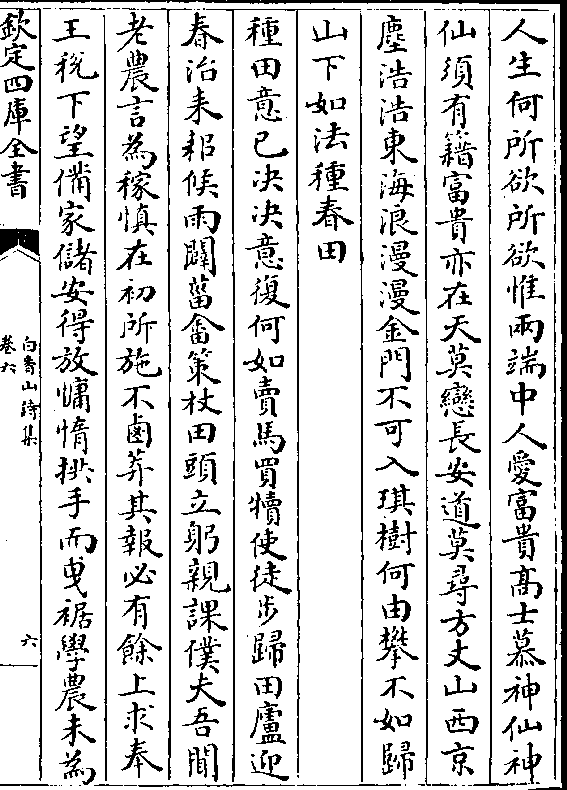 人生何所欲所欲惟兩端中人愛富貴髙士慕神仙神
仙須有籍富貴亦在天莫戀長安道莫尋方丈山西京
塵浩浩東海浪漫漫金門不可入琪樹何由攀不如歸
山下如法種春田
種田意已决决意復何如賣馬買犢使徒步歸田廬迎
春治耒耜候雨闢菑畬策杖田頭立躬親課僕夫吾聞
老農言為稼慎在初所施不鹵莽其報必有餘上求奉
王稅下望備家儲安得放慵惰拱手而曳裾學農未為
欽定四庫全書
白香山詩集
卷六
六